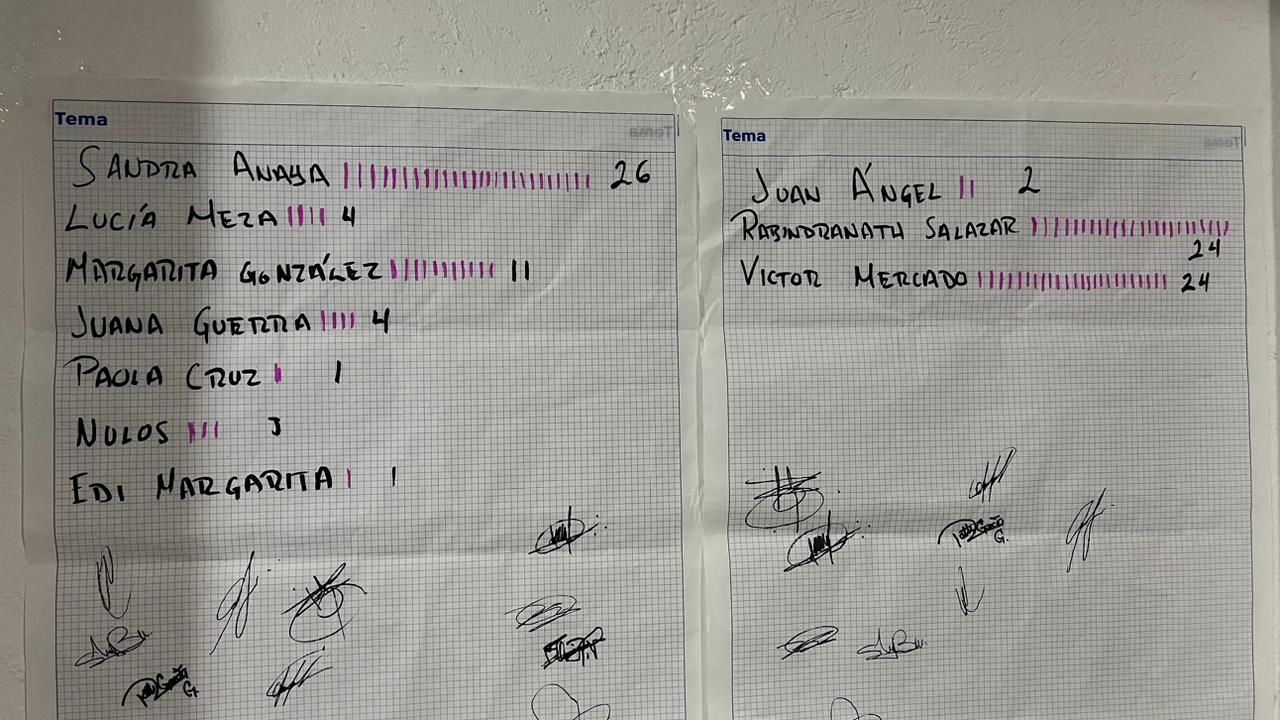 Tema
SANDRA ANAYA 26
LUCÍA MEZA 4
MARGARITA GONZÁLEZ 11
JUANA GUERRA 4
PAOLA CRUZ 1
NULOS 3
EDI MARGARITA 1
Tema
JUAN ÁNGEL 2
RABINDRANATH SALAZAR
24
VICTOR MERCADO 24